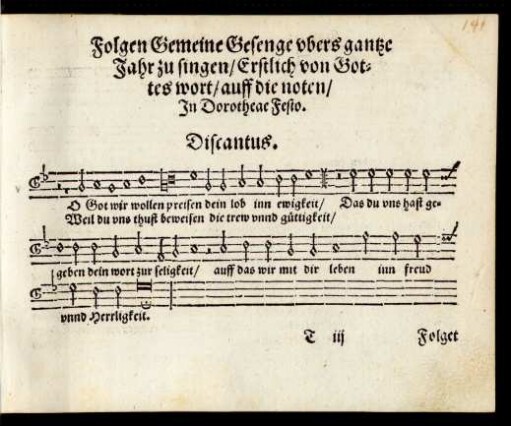 141
Folgen Gemeine Gesenge vbers gantze
Jahr zu singen/ Erstlich von Got-
tes wort/ auff die noten/
In Dorotheae Festo.
Discantus.
O Got wir wollen preisen dein lob inn ewigkeit/ Das du vns hast ge-
Weil du vns thust beweisen die trew vnnd güttigkeit/
geben dein wort zur seligkeit/ auff das wir mit dir leben inn freud
vnnd Herrligkeit.
T iij Folget